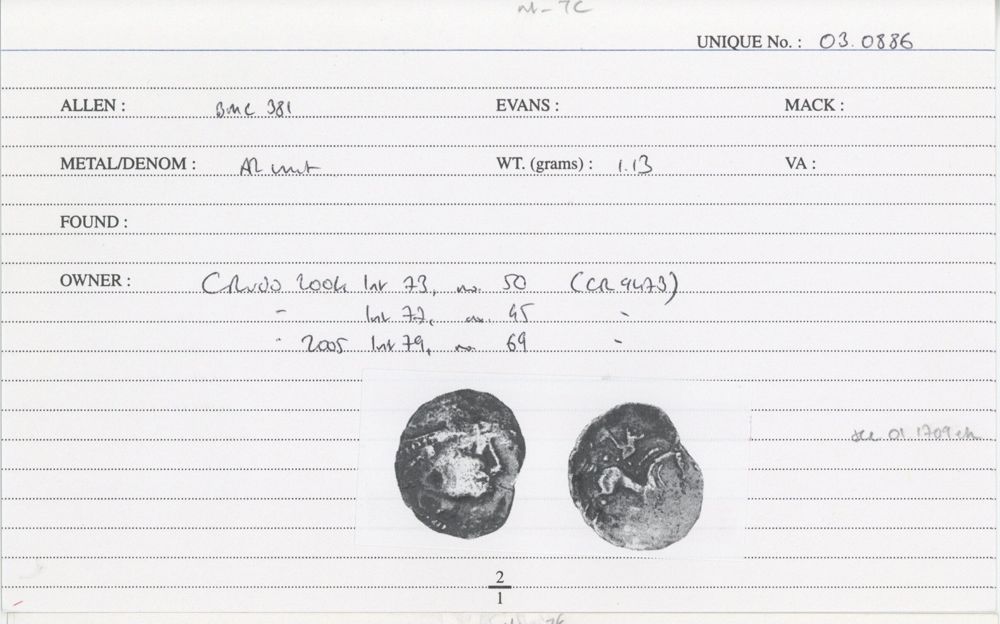 UNIQUE No. : 03.0886
ALLEN : BMC 381 EVANS : MACK :
METAL/DENOM : AR unit WT. (grams) : 1.13 VA :
FOUND :
OWNER : CR 2004 list 73, no. 50 (CR 9473)
- list 77, no. 45 -
- 2005 list 79, no. 69 -
see 01 1709
2
1